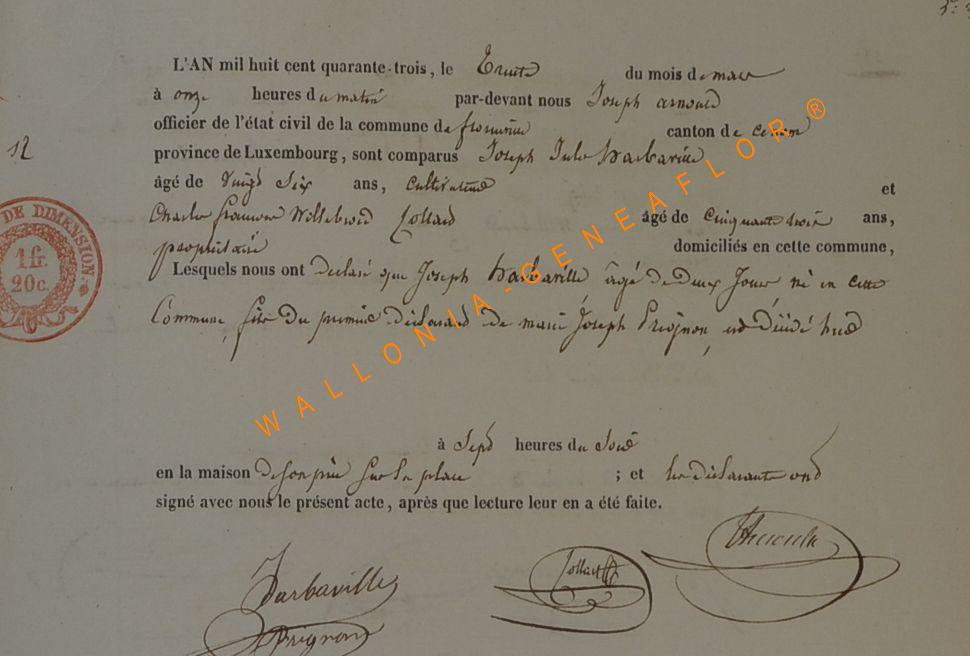 12
L'AN mil huit cent quarante-trois, le Trente du mois de mars
à onze heures du matin par-devant nous Joseph arnould
officier de l'état civil de la commune de florenville canton de
province de Luxembourg, sont comparus Joseph Jules harbaville
âgé de vingt six ans, cultivateur et
Charles francois Willebrord Collard âgé de cinquante trois ans,
propriétaire domiciliés en cette commune,
Lesquels nous ont declaré que Joseph harbaville âgé de deux Jours né en cette
Commune, fils du premier déclarant de marie Joseph Prignon, est décédé hier
à Sept heures du Soir
en la maison de son père sur la place ; et les déclarants ont
signé avec nous le présent acte, après que lecture leur en a été faite.
Harbaville
Prignon
Collard
DE DIMENSION
1 fr.
20 c.
WALLONIA-GENEAFLOR®